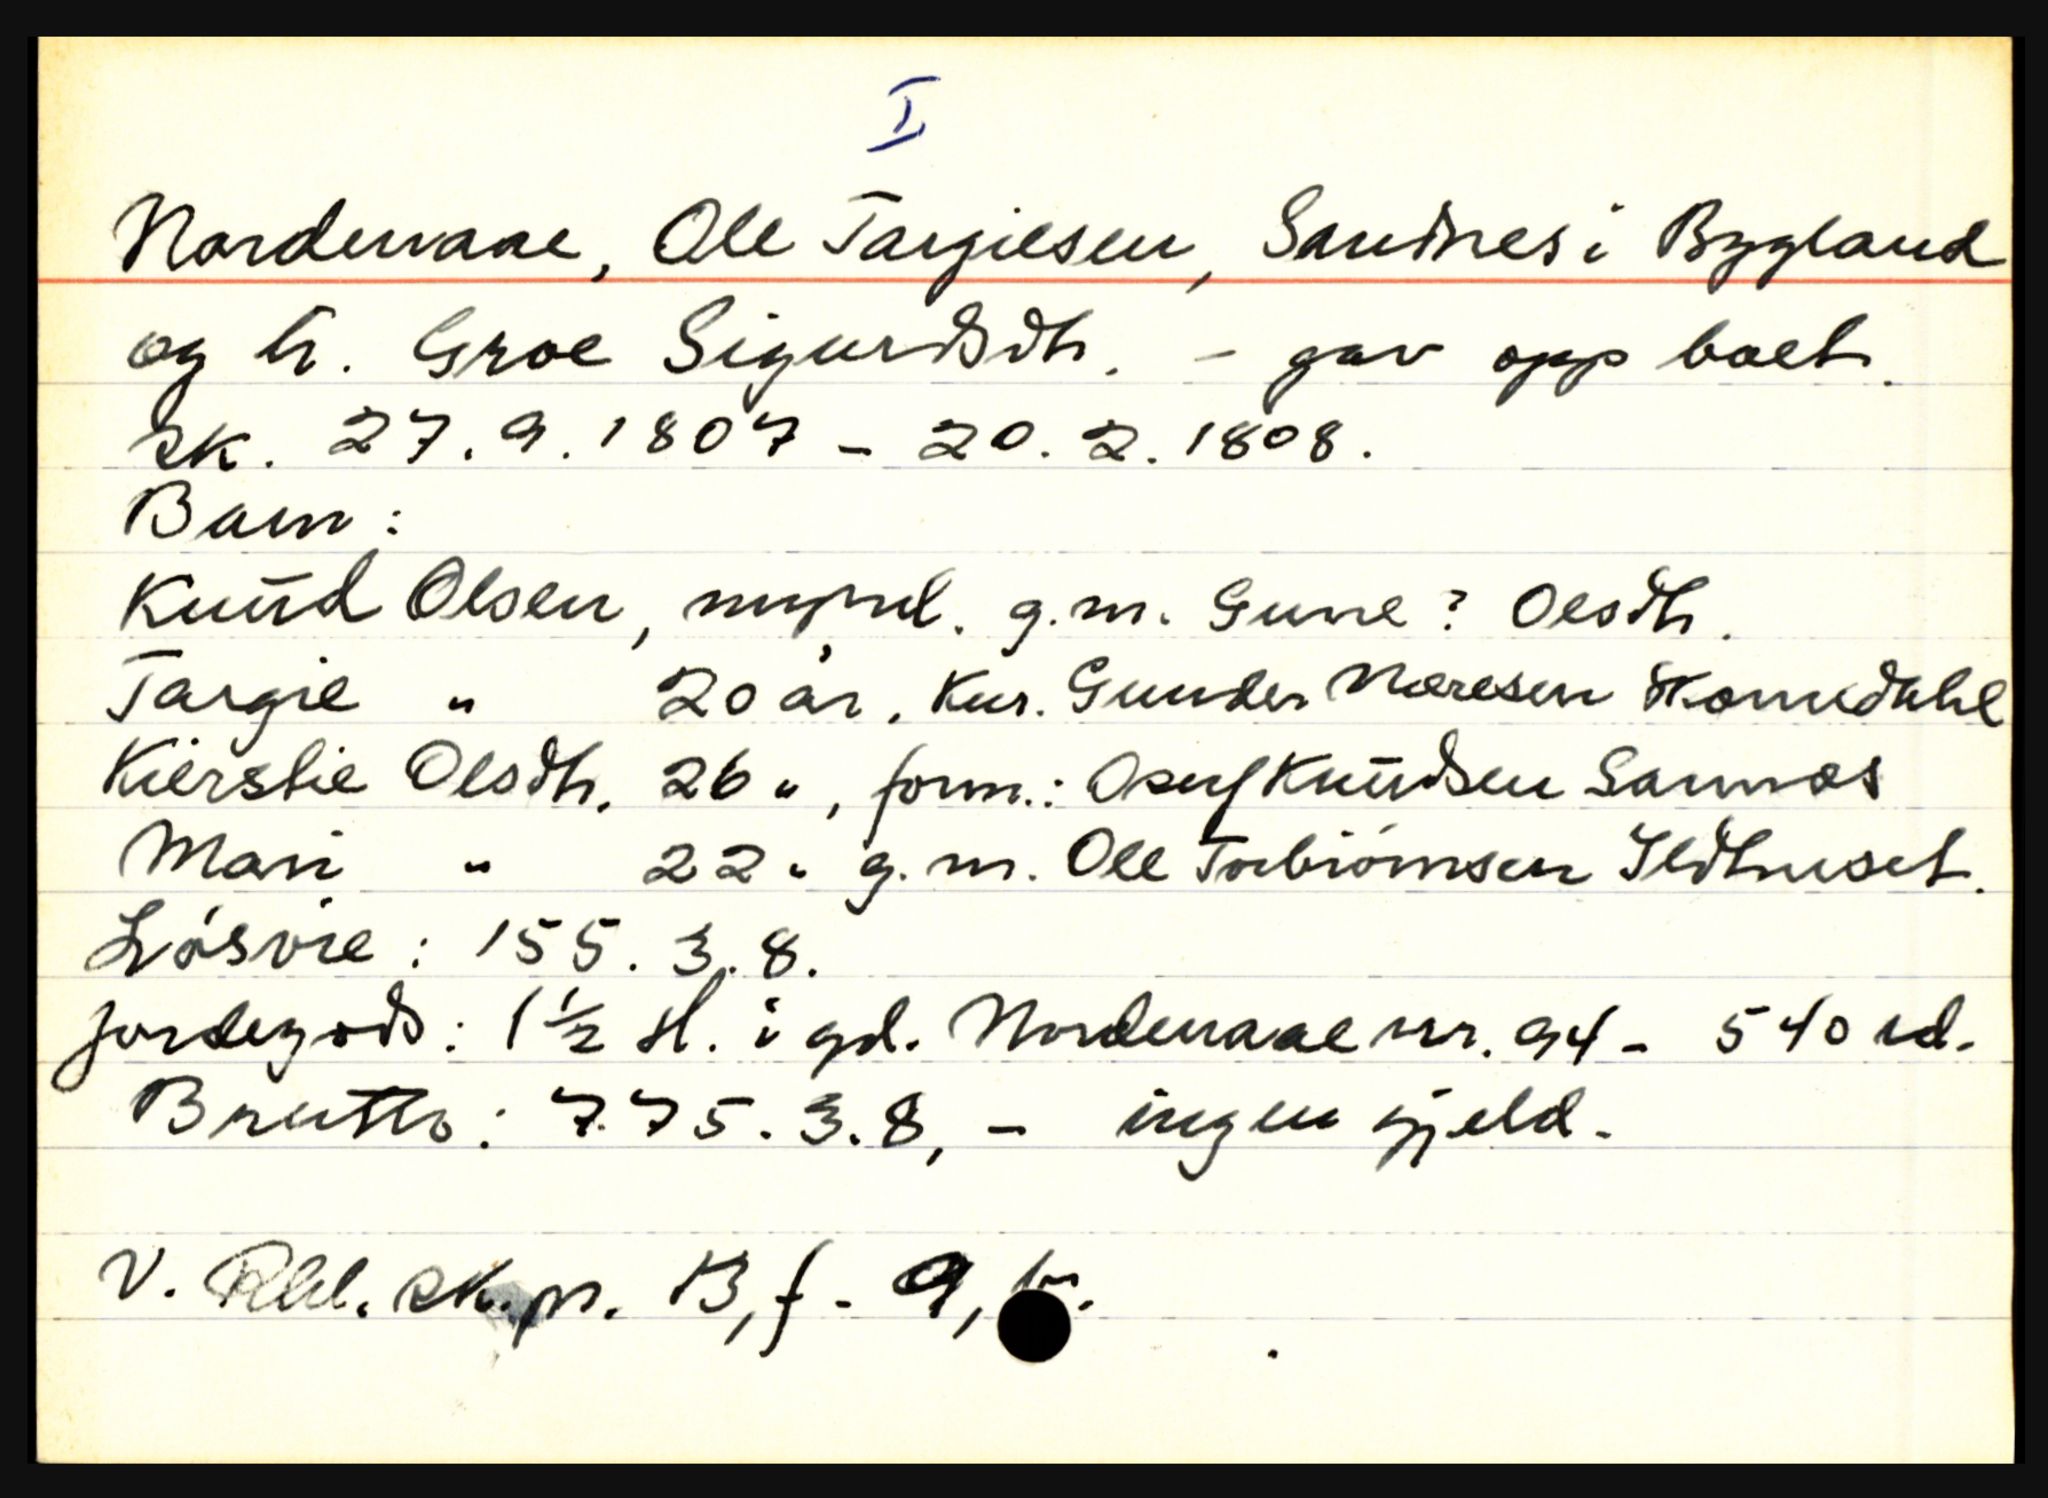 I
Nordenaae, Ole Targiesen, Sandnes i Bygland
og h. Groe Sigurdsdtr. - gav opp boet.
Sk. 27.9.1807 - 20.2.1808.
Barn:
Knud Olsen, mynd. g.m. Gune? Olsdtr.
Targie " 20 år, Kur. Gunder Næresen Skomedahl
Kierstie Olsdtr. 26 ", form.: Knudsen Sannæs
Mari " 22 " g.m. Ole Torbiörnsen Ildhuset.
Lösöre: 155.3.8.
Jordegods: 1 1/2 sl. i gd. Nordenaae nr. 94 - 540 rd.
Brutto: 775.3.8, - ingen gjeld.
V. Rbl. sk.pr. 13, f. 9, b.